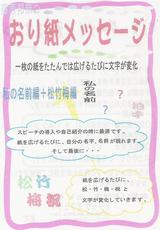 おり紙メッセージ
一枚の紙をたたんでは広げるたびに文字が変化
私の名前編+松竹梅編
私の名前
?
?
スピーチの導入や自己紹介の時に最適です。
紙を広げるたびに、自分の名字、名前が現れます。
そして最後に・・・
松竹
梅祝
紙を広げるたびに、
松・竹・梅・祝 と
文字が変化していきます。